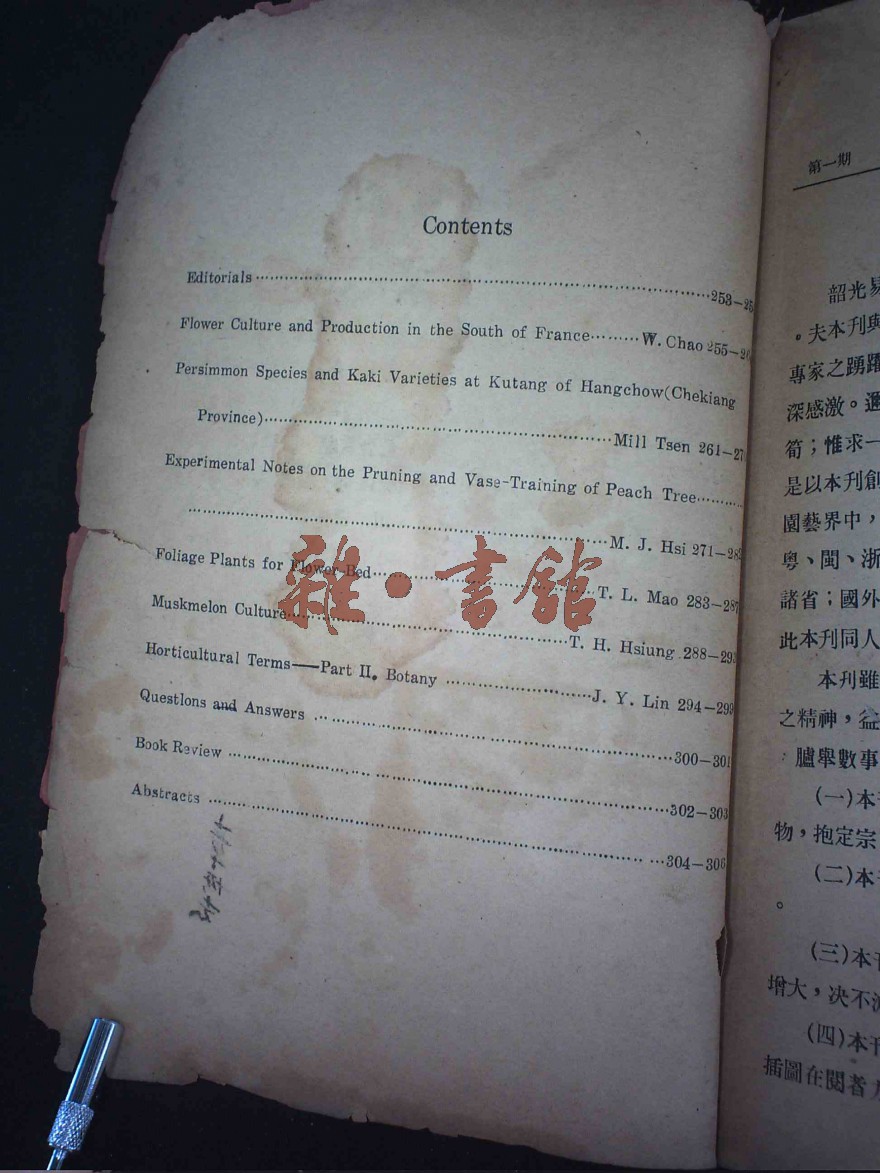 Contents
Editorials 253—25
Flower Culture and Production in the South of France W. Chao 255—2
Persimmon Species and Kaki Varieties at Kutang of Hangchow(Chekiang
Province) Mill Tsen 261—27
Experimental Notes on the Pruning and Vase-Training of Peach Tree
M. J. Hsi 271—28
Foliage Plants for Flower Bed T. L. Mao 283—287
Muskmelon Culture T. H. Hsiung 288—293
Horticultural Terms——Part II. Botany J. Y. Lin 294—299
Questions and Answers 300—301
Book Review 302—303
Abstracts 304—306
雜·書館
第一期
韶光易
。夫本刊與
專家之踴躍
深感激。邇
筍；惟求一
是以本刊創
園藝界中，
粵、閩、浙
諸省；國外
此本刊同人
本刊雖
之精神，益
臚舉數事
(一)本刊
物，抱定宗
(二)本
。
(三)本刊
增大，决不
(四)本刊
插圖在閱者